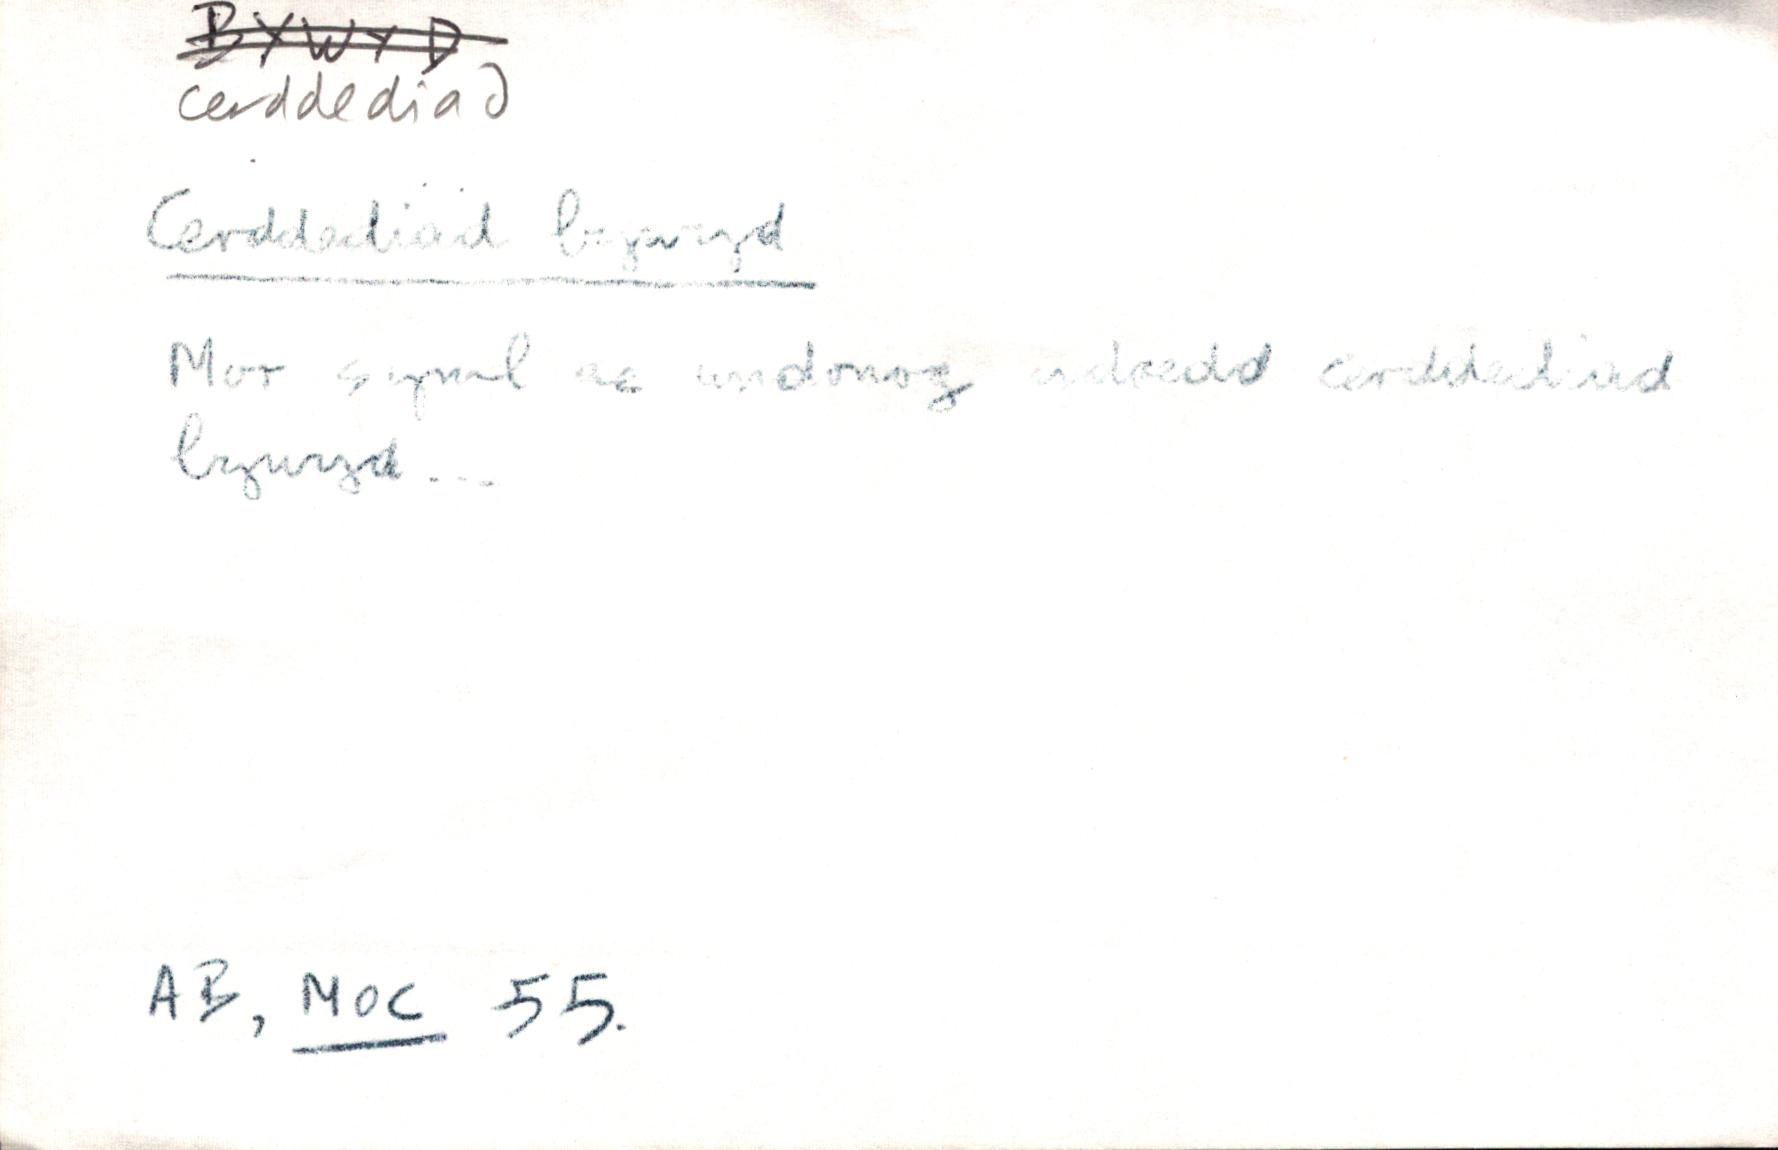 BYWYD
cerddediad
Cerddediad bywyd
Mor syml ac undonog ydoedd cerddediad
bywyd...
AB, MOC 55.